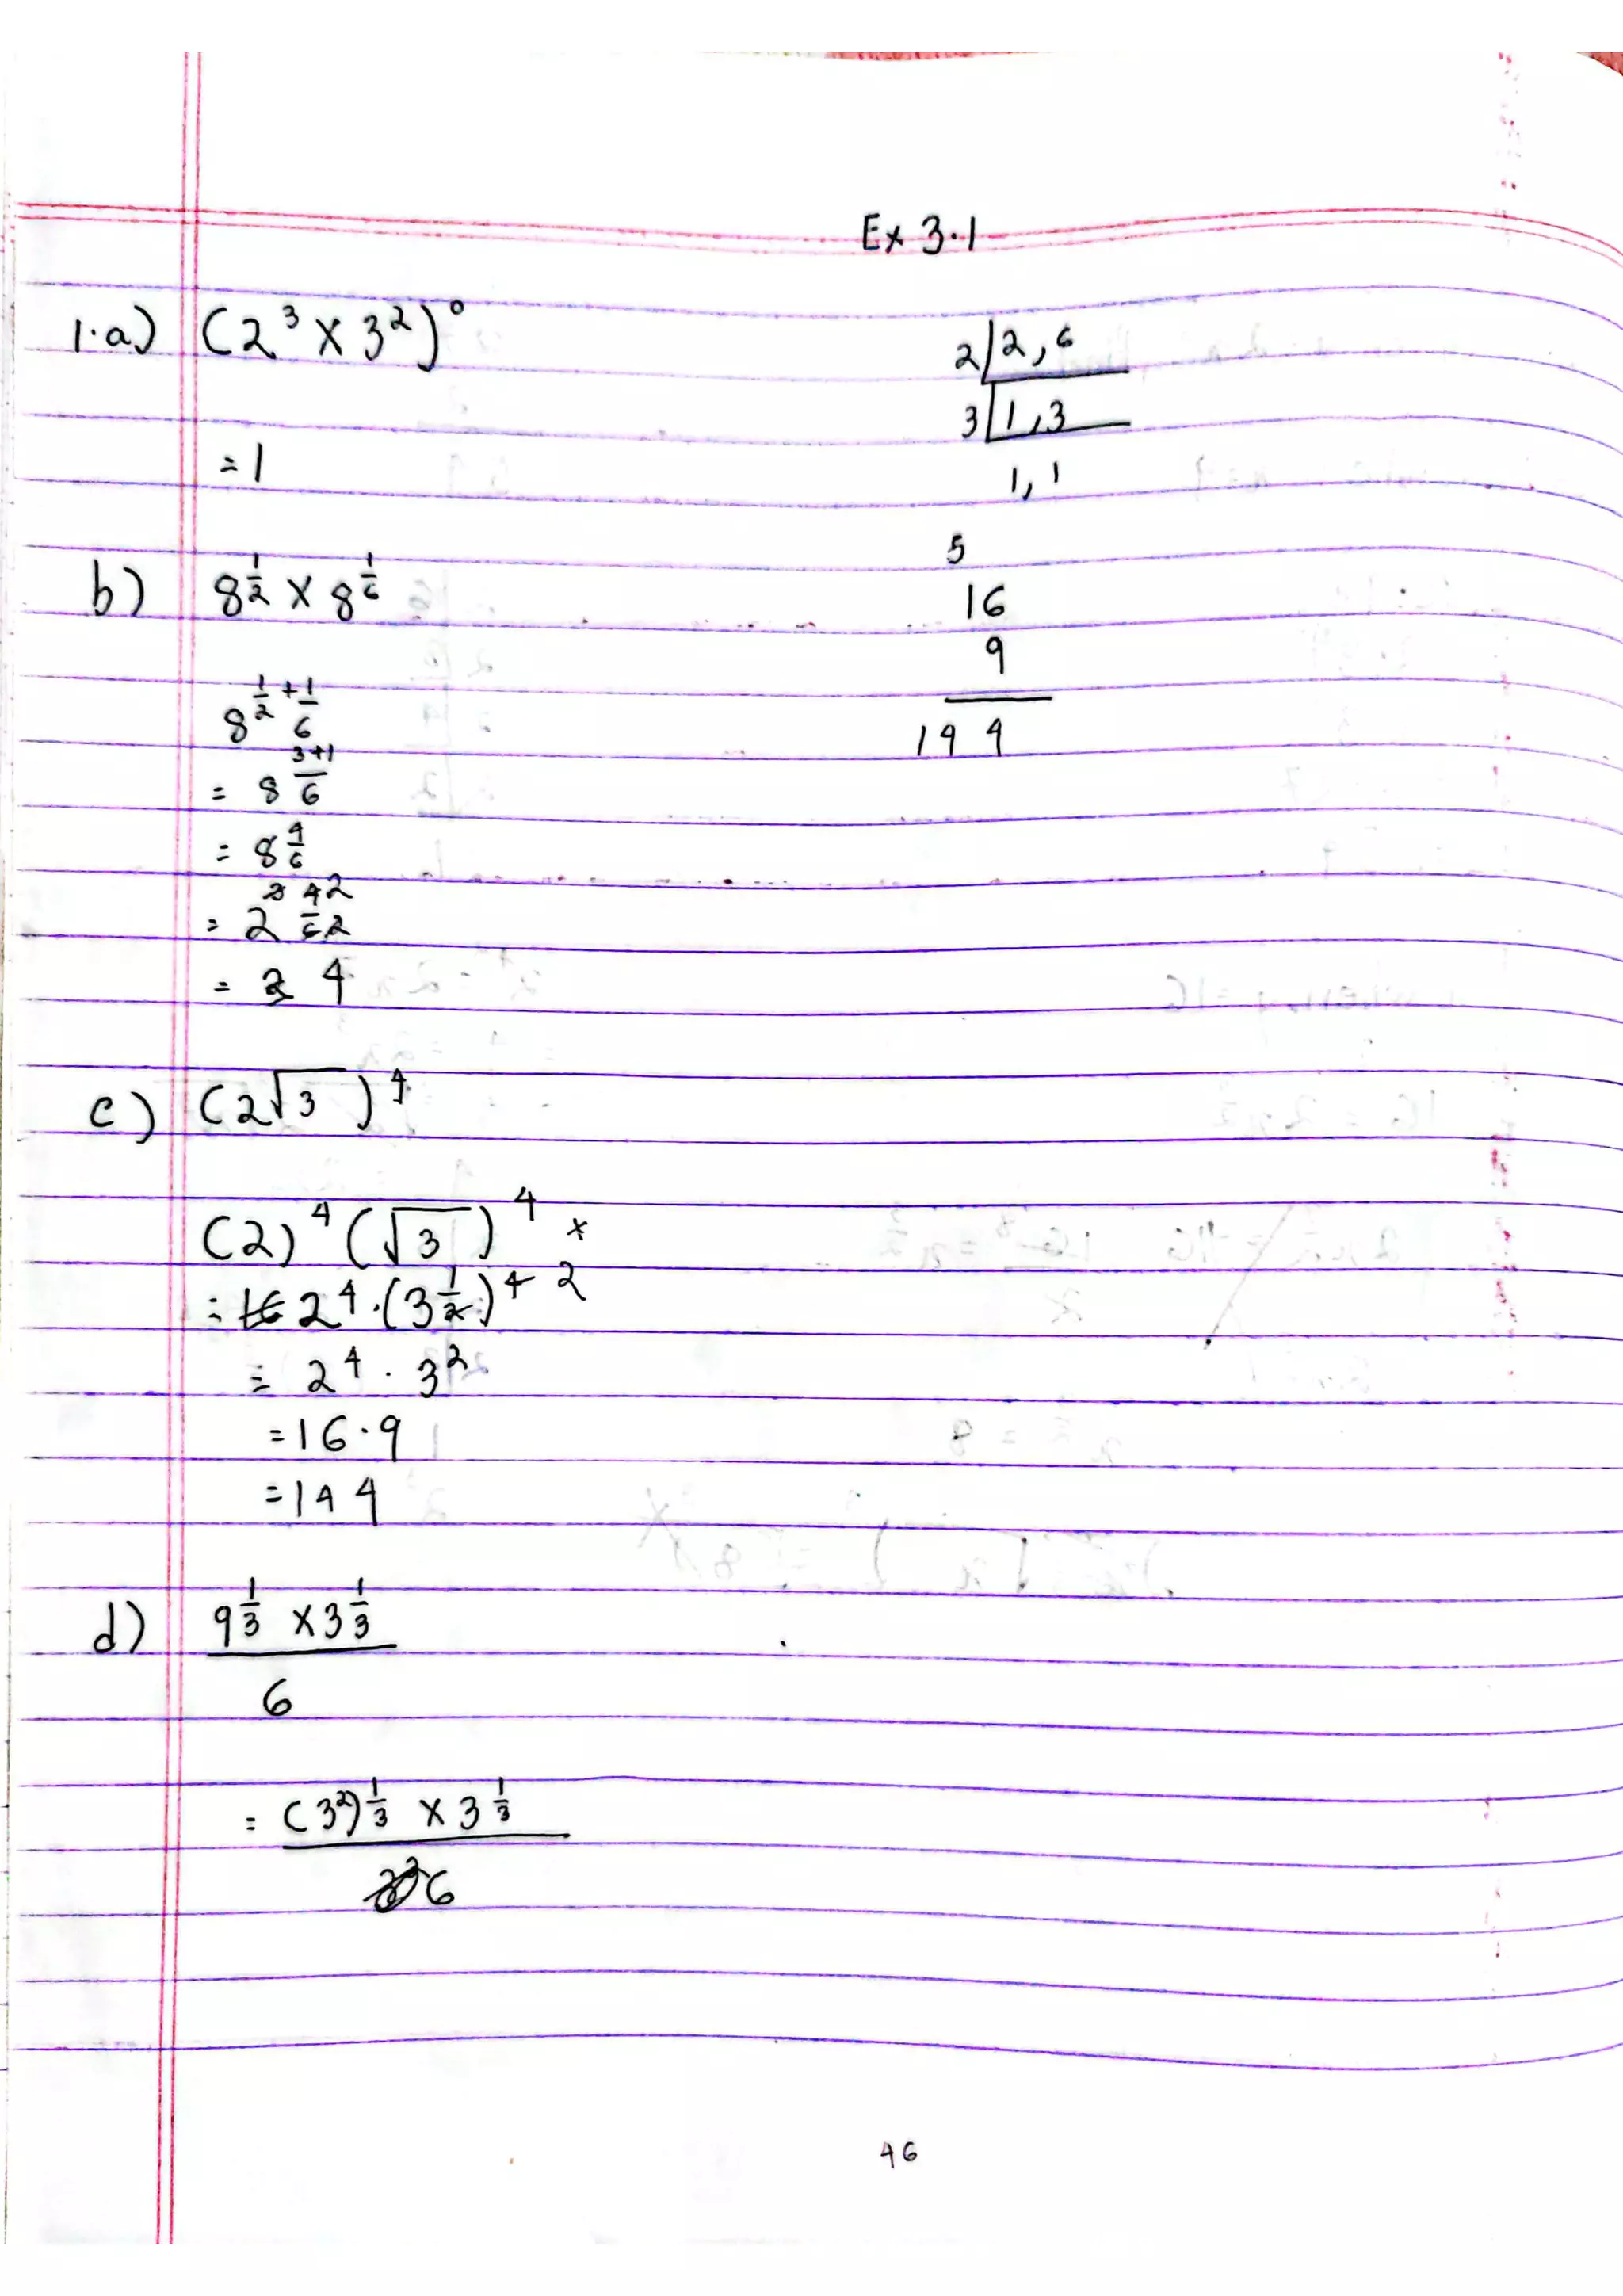 Ex 3.1
1.a) (2³ × 3²)⁰
2 | 2, 6
3 | 1, 3
1, 1
= 1
b) 8^(1/2) × 8^(1/6)
5
16
9
144
8^(1/2 + 1/6)
= 8^((3+1)/6)
= 8^(4/6)
= 2^(3 4/6) 2 2
= 4
c) (2√3)⁴
(2)⁴ (√3)⁴ ×
= 2⁴ . (3^(1/2))⁴ 2
= 2⁴ . 3²
= 16 . 9
= 144
d) (9^(1/3) × 3^(1/3)) / 6
= ((3²)^(1/3) × 3^(1/3)) / 6
46